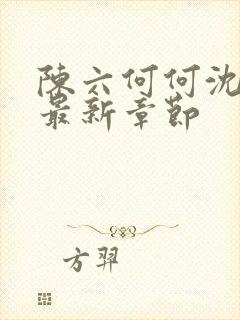 陳六何何沈
最新章節
方羿